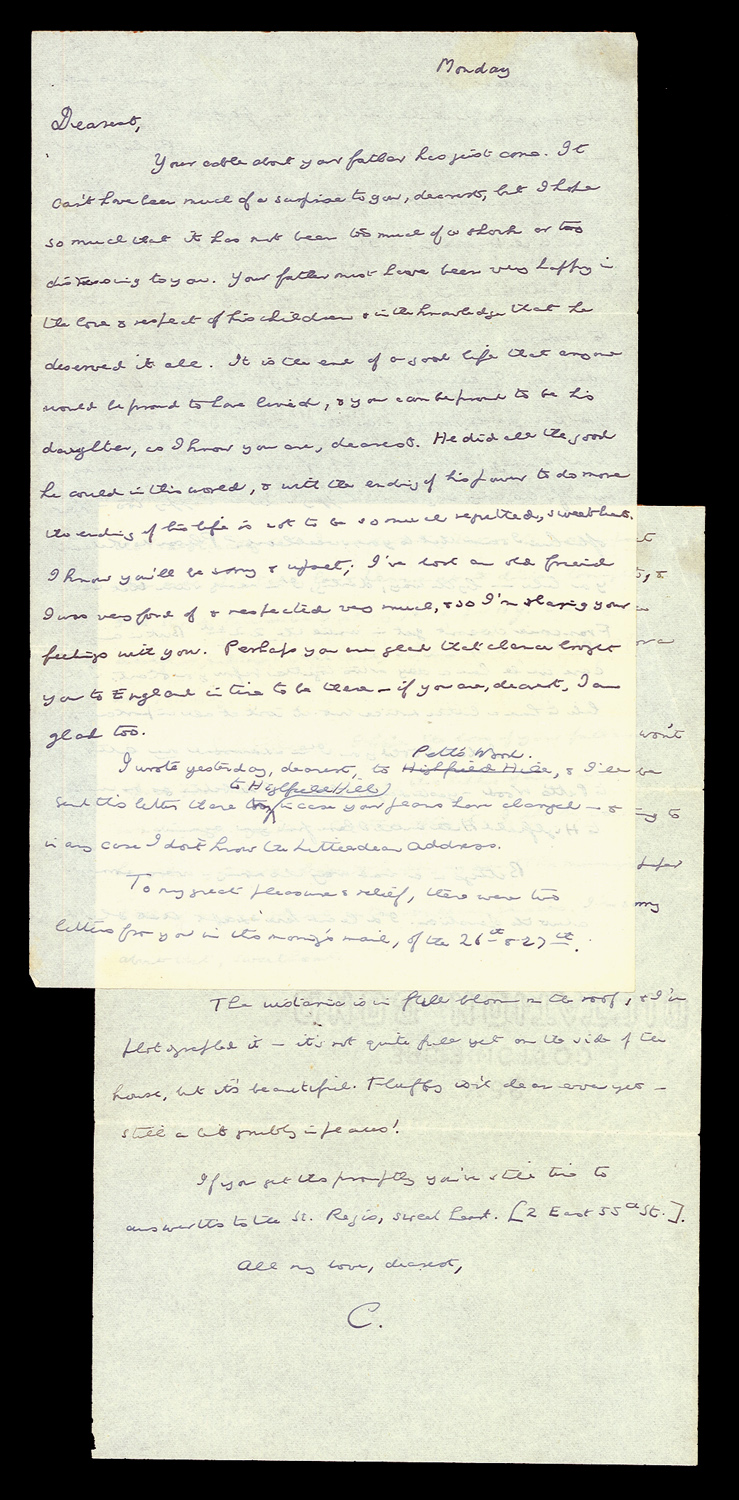 Monday
Dearest,
Your cable about your father has just come. It
can't have been much of a surprise to you, dearest, but I hope
so much that it has not been too much of a shock or too
distressing to you. Your father must have been very happy in
the love & respect of his children & in the knowledge that he
deserved it all. It is the end of a good life that anyone
would be proud to have lived, & you can be proud to be his
daughter, as I know you are, dearest. He did all the good
he could in this world, & with the ending of his power to do more
the ending of his life is not to be so much regretted, sweetheart.
I know you'll be sorry & upset; I've lost an old friend
I was very fond of & respected very much, & so I'm sharing your
feelings with you. Perhaps you are glad that chance brought
you to England in time to be there — if you are, dearest, I am
glad too.
Petts Wood.
I wrote yesterday, dearest, to Highfield Hill, & I'll
to Highfield Hill
send this letter there in case your plans have changed — &
in any case I don't know the Letterdean Address.
To my great pleasure & relief, there were two
letters from you in this morning's mail, of the 26th & 27th.
won't
be
The wistaria is in full bloom on the roof, & I'm
photographed it — it's not quite full yet on the side of the
house, but it's beautiful. Fluffy isn't clean ever yet —
still a bit grubby in places!
If you get this promptly you've still time to
answer this to the St. Regis, sweet heart. [2 East 55th St.].
All my love, dearest,
C.